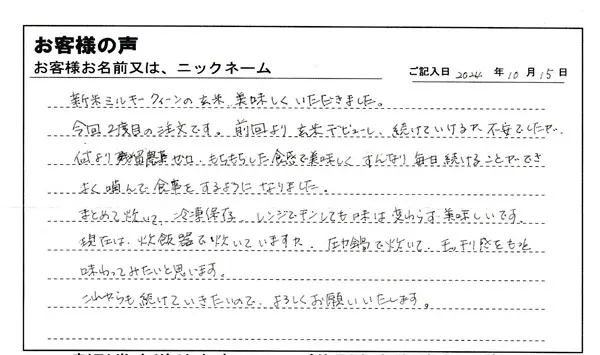 お客様の声
お客様お名前又は、ニックネーム
ご記入日 2024 年 10 月 15 日
新米ミルキークィーンの玄米、美味しくいただきました。
今回2度目の注文です。前回より玄米デビューし、続けていけるか不安でしたが、
何より残留農薬ゼロ、もちもちした食感で美味しく、すんなり毎日続けることができ
よく噛んで食事をするようになりました。
まとめて炊いて、冷凍保存、レンジでチンしても味は変わらず美味しいです。
現在は、炊飯器で炊いていますが、圧力鍋で炊いて、モッチリ感をもっと
味わってみたいと思います。
これからも続けていきたいので、よろしくお願いいたします。